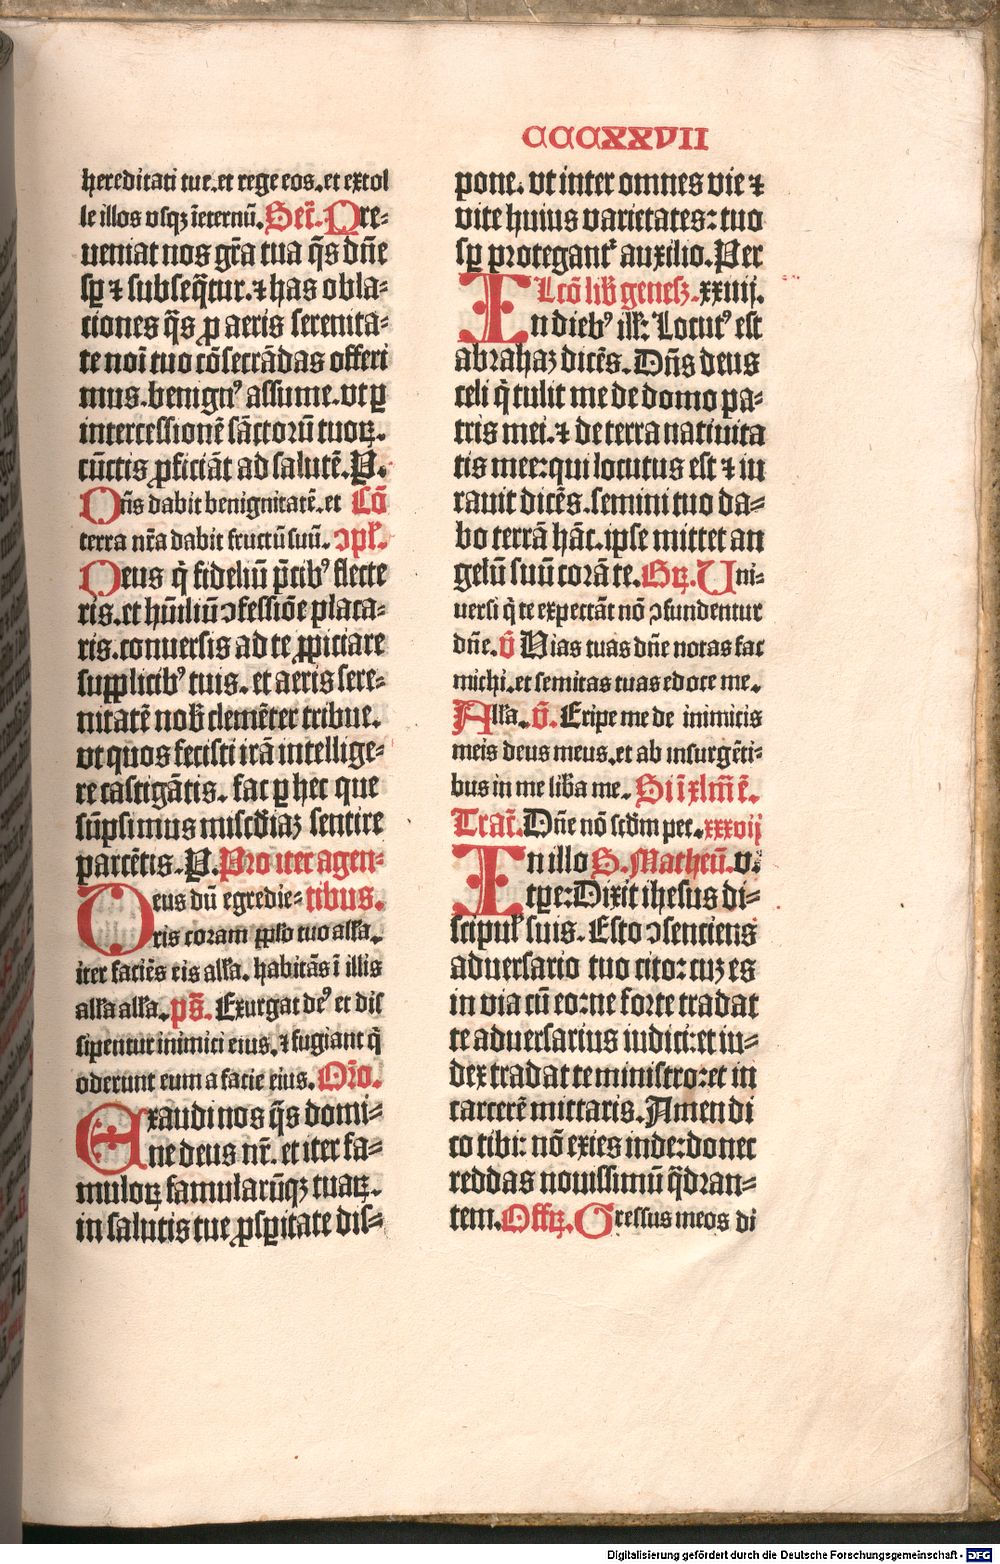 CCCXXVII
hereditati tue.et rege eos.et extol
le illos vsqꝫ īeternū. Secr̄. Pre-
ueniat nos gr̄a tua q̄s dn̄e
sꝑ ⁊ subseq̄tur.⁊ has obla-
ciones q̄s ꝓ aeris serenita-
te noī tuo cōsecrādas offeri
mus.benignꝰ assume.vt ꝑ
intercessionē sāctorū tuoꝝ.
cūctis ꝓficiāt ad salutē. P.
Dn̄s dabit benignitatē.et Cō
terra nr̄a dabit fructū suū. ↄpl̄.
Deus q̄ fideliū p̄cibꝰ flecte
ris.et hūiliū ↄfessiōe placa-
ris.conuersis ad te ꝓpiciare
supplicibꝰ tuis. et aeris sere-
nitatē nob̄ clemēter tribue.
vt quos fecisti irā intellige-
re castigātis. fac ꝑ hec que
sūpsimus mis̄cdiaꝫ sentire
parcētis. P. Pro iter agen-
Deus dū egredie- tibus.
ris coram ppl̄o tuo all̄a.
iter faciēs eis all̄a. habitās ī illis
all̄a all̄a. ps̄. Exurgat deꝰ et dis
sipentur inimici eius. ⁊ fugiant q̄
oderunt eum a facie eius. Or̄o.
Exaudi nos q̄s domi-
ne deus nr̄. et iter fa-
muloꝝ famularūqꝫ tuaꝝ.
in salutis tue ꝓsꝑitate dis-
pone. vt inter omnes vie ⁊
vite huius varietates: tuo
sꝑ protegant᷑ auxilio. Per
Lcō lib̄ geneſꝫ. xxiiij.
In diebꝰ ill̄: Locutꝰ est
abrahaꝫ dicēs. Dn̄s deus
celi q̄ tulit me de domo pa-
tris mei. ⁊ de terra natiuita
tis mee:qui locutus est ⁊ iu
rauit dicēs.semini tuo da-
bo terrā hāc.ipse mittet an
gelū suū corā te. Gꝝ. Uni-
uersi q̄ te expectāt nō ↄfundentur
dn̄e. v̄ Vias tuas dn̄e notas fac
michi.et semitas tuas edoce me.
All̄a. v̄. Eripe me de inimicis
meis deus meus.et ab insurgēti-
bus in me lib̄a me. Si ī xlm̄ ē.
Tract̄. Dn̄e nō scd̄m pec. xxxvij
In illo S. Matheū. v.
tꝑe: Dixit ihesus di-
scipul̄ suis. Esto ↄsenciens
aduersario tuo cito: cuꝫ es
in via cū eo:ne forte tradat
te aduersarius iudici:et iu-
dex tradat te ministro:et in
carcerē mittaris. Amen di
co tibi: nō exies inde:donec
reddas nouissimū q̄dran-
tem. Offꝝ. Gressus meos di
Digitalisierung gefördert durch die Deutsche Forschungsgemeinschaft - DFG